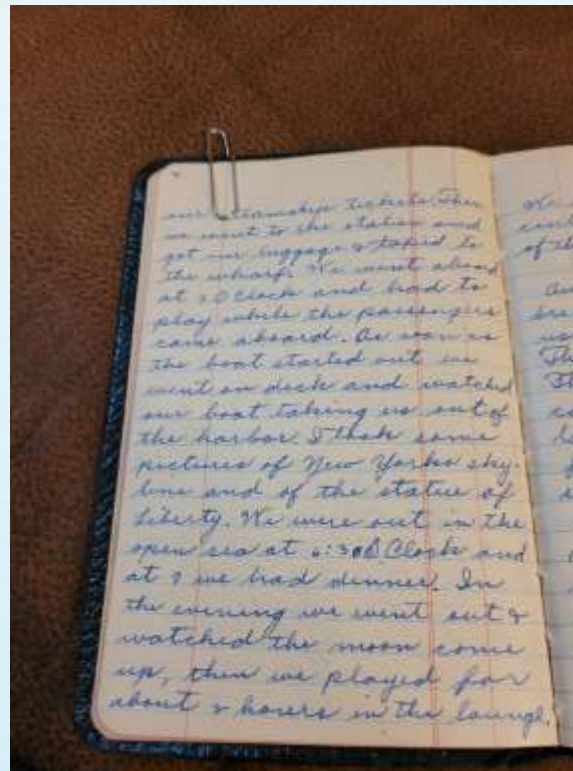 our steamship tickets Then
we went to the station and
got our luggage & taxied to
the wharf. We went aboard
at O Clock and had to
play while the passengers
came aboard. As soon as
the boat started out we
went on deck and watched
our boat taking us out of
the harbor. I took some
pictures of New Yorks sky-
line and of the statue of
Liberty. We were out in the
open sea at O Clock and
at we had dinner. In
the evening we went out &
watched the moon come
up, then we played for
about hours in the lounge.
We
of th